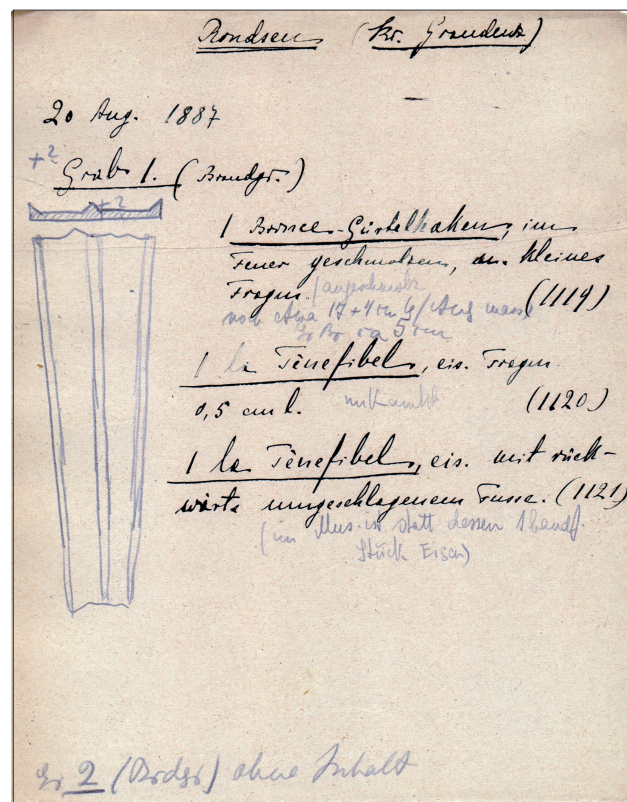 Rondsen (Kr. Graudenz)
20 Aug. 1887
+2
Grab 1. (Brandgr.)
+2
1 Bronce-Gürtelhaken, im
Feuer geschmolzen, u. kleines
Fragm. (1119)
noch etwa 17+4 cm lg
Gr Br ca 5 cm
1 la Tènefibel, eis. Fragm.
0,5 cm l. (1120)
1 la Tènefibel, eis. mit rück-
wärts umgeschlagenem Fusse. (1121)
(im Mus. ist statt dessen 1 bandf.
Stück Eisen)
Gr 2 (Brdgr) ohne Inhalt